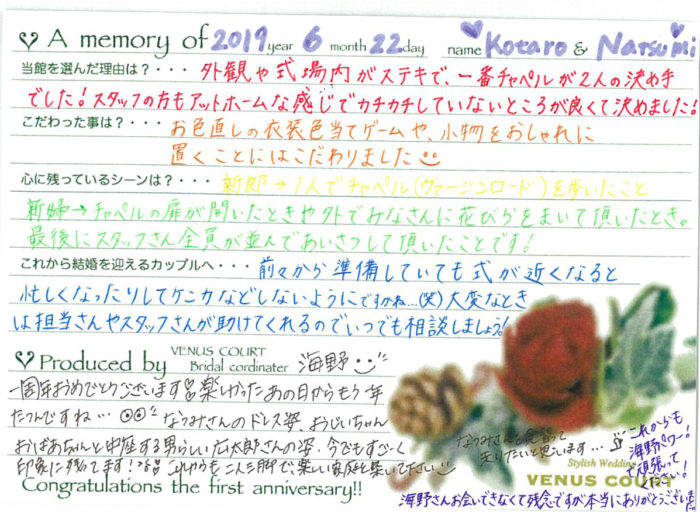 A memory of 2019 year 6 month 22 day name Kotaro & Natsumi
当館を選んだ理由は？・・・ 外観や式場内がステキで、一番チャペルが2人の決め手
でした！スタッフの方もアットホームな感じでカチカチしていないところが良くて決めました！
こだわった事は？・・・ お色直しの衣装色当てゲームや、小物をおしゃれに
置くことにはこだわりました
心に残っているシーンは？・・・ 新郎→1人でチャペル(ヴァージンロード)を歩いたこと
新婦→チャペルの扉が開いたときや外でみなさんに花びらをまいて頂いたとき。
最後にスタッフさん全員が並んであいさつして頂いたことです！
これから結婚を迎えるカップルへ・・・ 前々から準備していても式が近くなると
忙しくなったりしてケンカなどしないようにですかね…(笑)大変なとき
は担当さんやスタッフさんが助けてくれるのでいつでも相談しましょう！
Produced by VENUS COURT
Bridal cordinater 海野
一周年おめでとうございます 楽しかったあの日からもう1年
たつんですね… なつみさんのドレス姿、おじいちゃん
おばあちゃんと中座する男らしい広太郎さんの姿、今でもすごーく
印象に残ってます！ これからも二人三脚で、楽しい家庭を築いて下さい
Congratulations the first anniversary!!
なつみさんと
走りたいと思います…
これからも
海野パワー！
で頑張って
ください！
Stylish Wedding
VENUS COURT
海野さんお会いできなくて残念ですが本当にありがとうございました